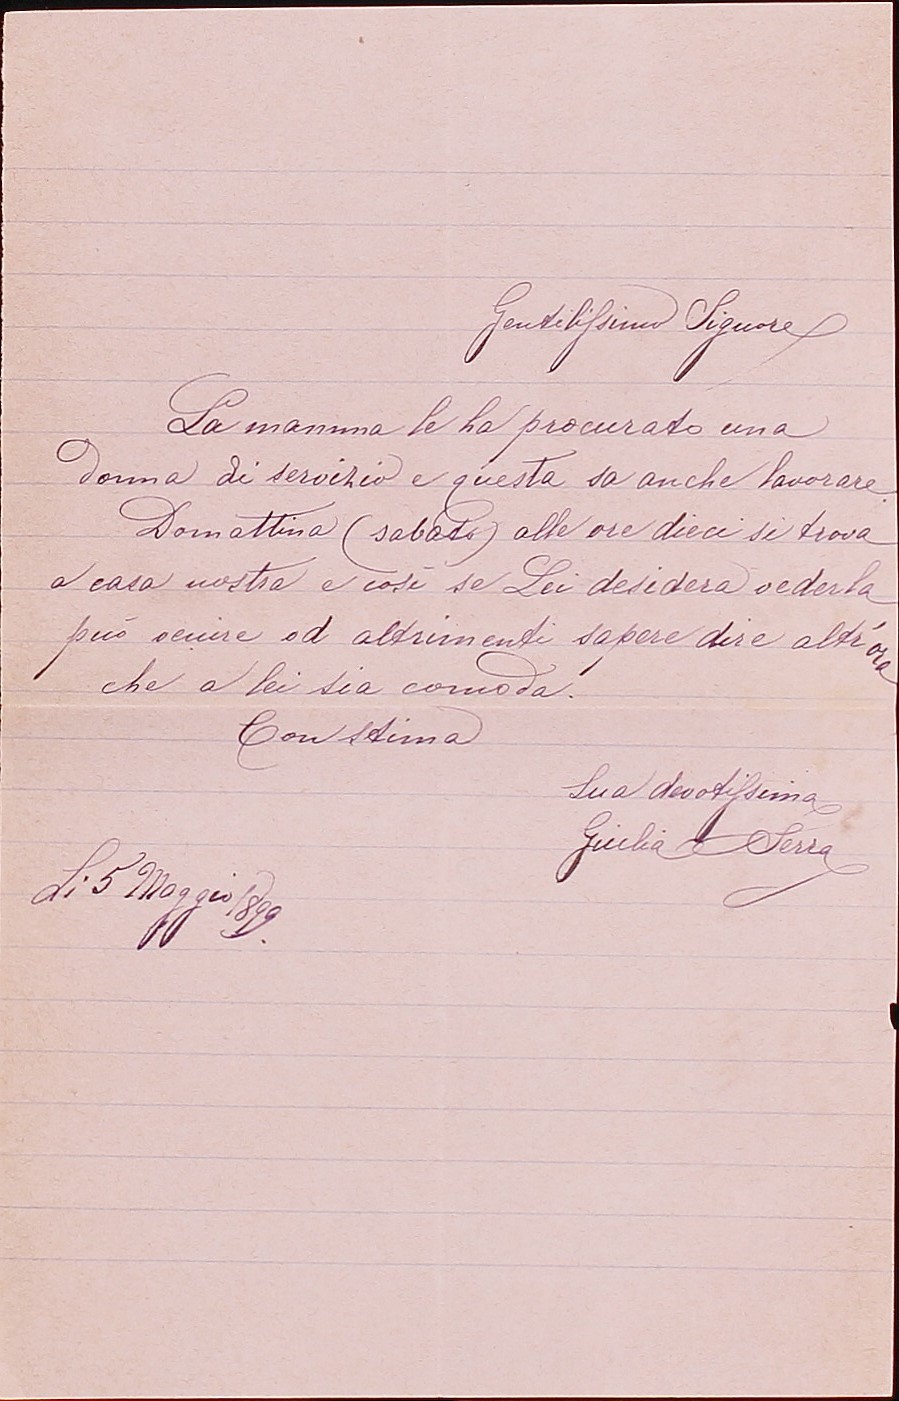 Gentilissimo Signore
La mamma le ha procurato una
donna di servizio e questa sa anche lavorare.
Domattina (sabato) alle ore dieci si trova
a casa nostra e così se Lei desidera vederla
può venire od altrimenti sapere dire altr'ora
che a lei sia comoda.
Con stima
Sua devotissima
Giulia Serra
Li 5 Maggio 1899.